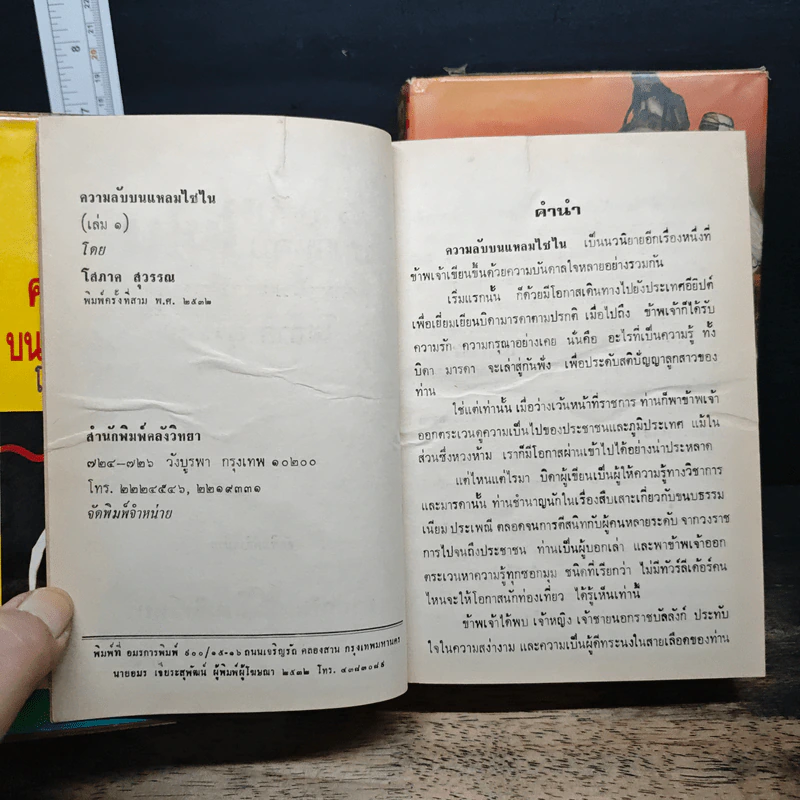 ความลับบนแหลมไซไน
(เล่ม ๑)
โดย
โสภาค สุวรรณ
พิมพ์ครั้งที่สาม พ.ศ. ๒๕๓๒
สำนักพิมพ์คลังวิทยา
๗๒๔–๗๒๖ วังบูรพา กรุงเทพ ๑๐๒๐๐
โทร. ๒๒๒๔๕๔๖, ๒๒๑๙๓๓๑
จัดพิมพ์จำหน่าย
พิมพ์ที่ อมรการพิมพ์ ๙๐๐/๑๕-๑๖ ถนนเจริญรัถ คลองสาน กรุงเทพมหานคร
นายอมร เจียระสุพัฒน์ ผู้พิมพ์ผู้โฆษณา ๒๕๓๒ โทร. ๔๓๗๓๐๘๙
คำนำ
ความลับบนแหลมไซไน เป็นนวนิยายอีกเรื่องหนึ่งที่
ข้าพเจ้าเขียนขึ้นด้วยความบันดาลใจหลายอย่างรวมกัน
เริ่มแรกนั้น ก็ด้วยมีโอกาสเดินทางไปยังประเทศอียิปต์
เพื่อเยี่ยมเยียนบิดามารดาตามปรกติ เมื่อไปถึง ข้าพเจ้าก็ได้รับ
ความรัก ความกรุณาอย่างเคย นั่นคือ อะไรที่เป็นความรู้ ทั้ง
บิดา มารดา จะเล่าสู่กันฟัง เพื่อประดับสติปัญญาลูกสาวของ
ท่าน
ใช่แต่เท่านั้น เมื่อว่างเว้นหน้าที่ราชการ ท่านก็พาข้าพเจ้า
ออกตระเวนดูความเป็นไปของประชาชนและภูมิประเทศ แม้ใน
ส่วนซึ่งหวงห้าม เราก็มีโอกาสผ่านเข้าไปได้อย่างน่าประหลาด
แต่ไหนแต่ไรมา บิดาผู้เขียนเป็นผู้ให้ความรู้ทางวิชาการ
และมารดานั้น ท่านชำนาญนักในเรื่องสืบเสาะเกี่ยวกับขนบธรรม
เนียม ประเพณี ตลอดจนการตีสนิทกับผู้คนหลายระดับ จากวงราช
การไปจนถึงประชาชน ท่านเป็นผู้บอกเล่า และพาข้าพเจ้าออก
ตระเวนหาความรู้ทุกซอกมุม ชนิดที่เรียกว่า ไม่มีทัวร์ลีดเดอร์คน
ไหนจะให้โอกาสนักท่องเที่ยว ได้รู้เห็นเท่านี้
ข้าพเจ้าได้พบ เจ้าหญิง เจ้าชายนอกราชบัลลังก์ ประทับ
ใจในความสง่างาม และความเป็นผู้ดีทระนงในสายเลือดของท่าน